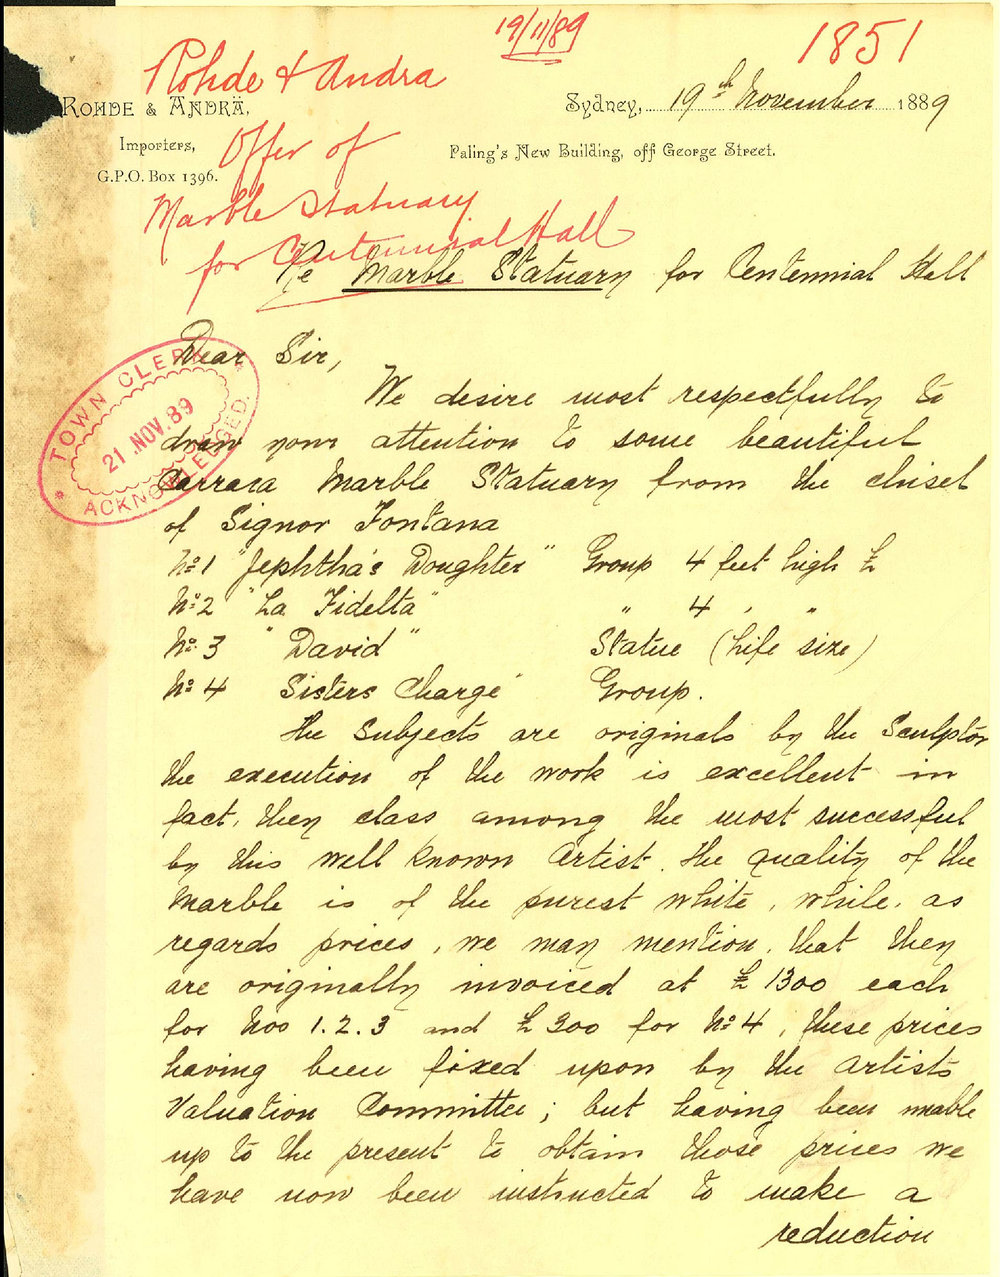 19/11/89
1851
Rohde & Andra
ROHDE & ANDRÄ,
Sydney, 19th November 1889
Importers,
Offer of
Paling's New Building, off George Street.
G.P.O. Box 1396.
Marble Statuary
for Centennial Hall
Re Marble Statuary for Centennial Hall
TOWN CLERK
21 NOV. 89
ACKNOWLEDGED.
Dear Sir,
We desire most respectfully to
draw your attention to some beautiful
Carrara Marble Statuary from the chisel
of Signor Fontana
No 1 "Jephtha's Doughter" Group 4 feet high £
No 2 "La Fidelta" " 4 " "
No 3 "David" Statue (Life size)
No 4 Sisters Charge" Group.
The Subjects are originals by the Sculptor
the execution of the work is excellent in
fact, they class among the most successful
by this well known Artist. The quality of the
Marble is of the purest white, while, as
regards prices, we may mention, that they
are originally invoiced at £1300 each
for Nos 1. 2. 3 and £300 for No 4, these prices
having been fixed upon by the Artists
Valuation Committee; but having been unable
up to the present to obtain those prices we
have now been instructed to make a
reduction